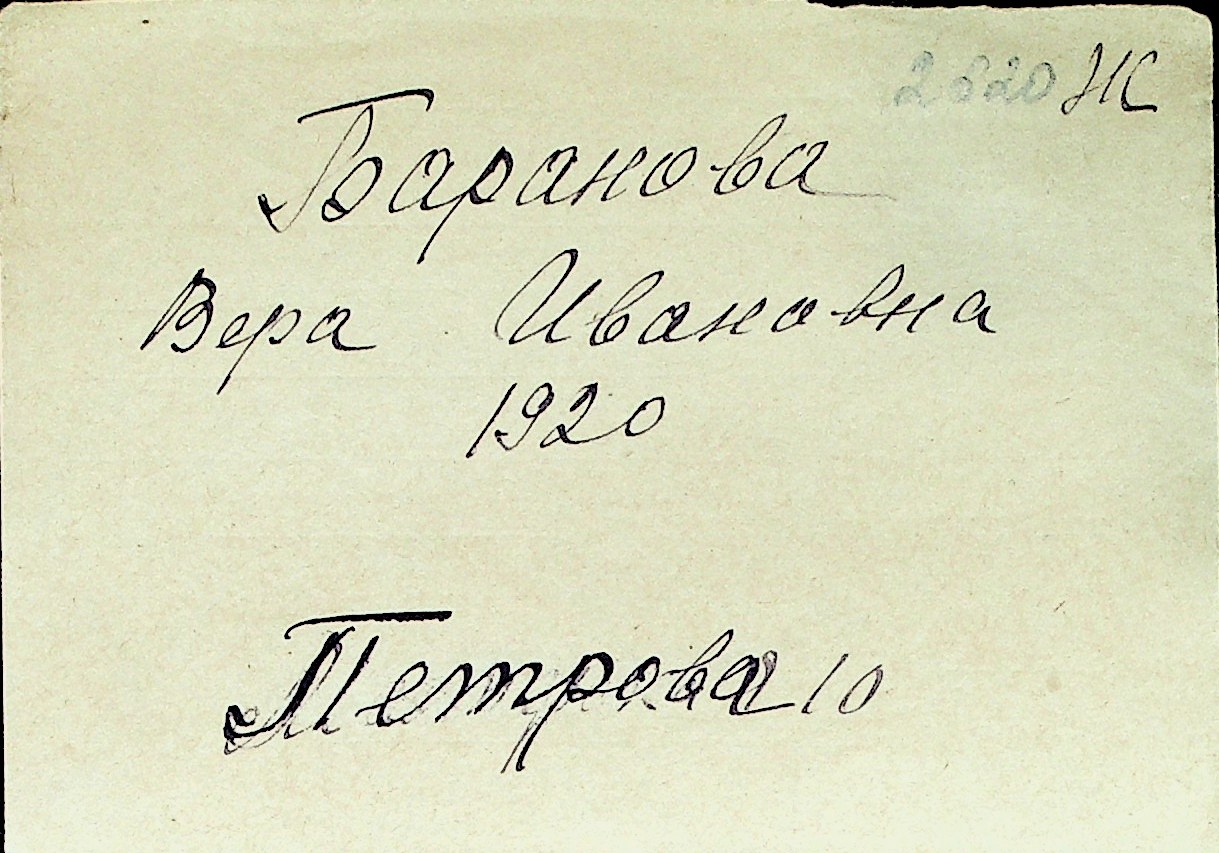 2820 Ж
Баранова
Вера Ивановна
1920
Петрова 10